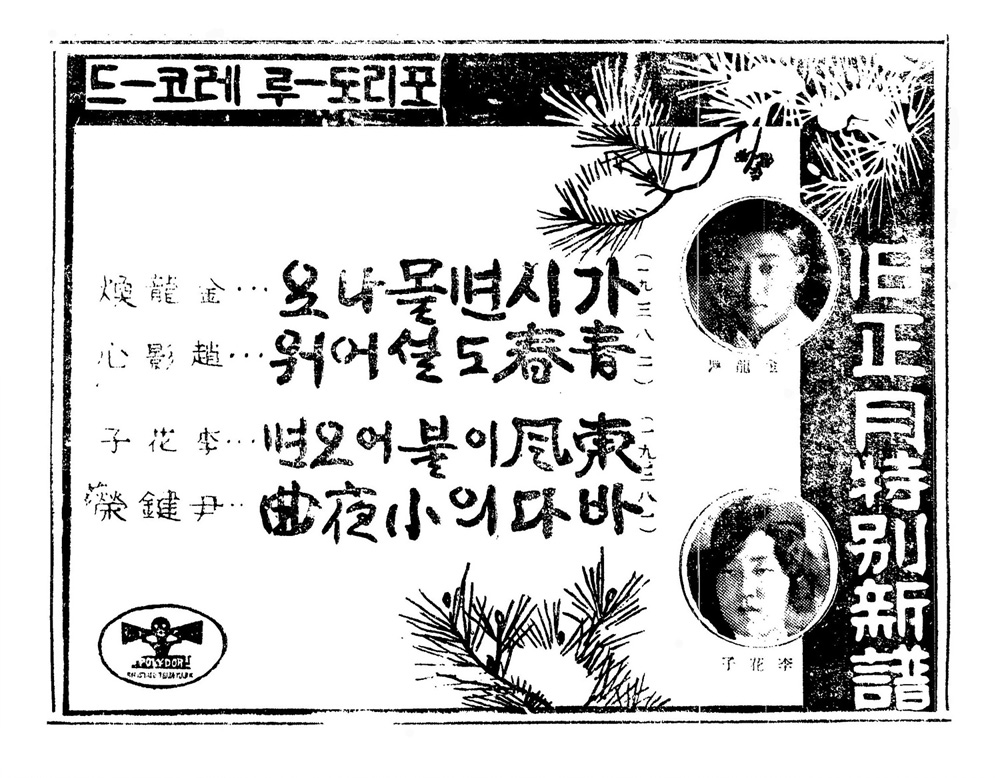 포리도ー루 레코ー드
旧正月特別新譜
(一九三八二)
가시면몰나요…金龍煥
青春도설어워…趙影心
(一九三八一)
東風이불어오면…李花子
바다의小夜曲…尹鍵榮
金龍煥
李花子
POLYDOR